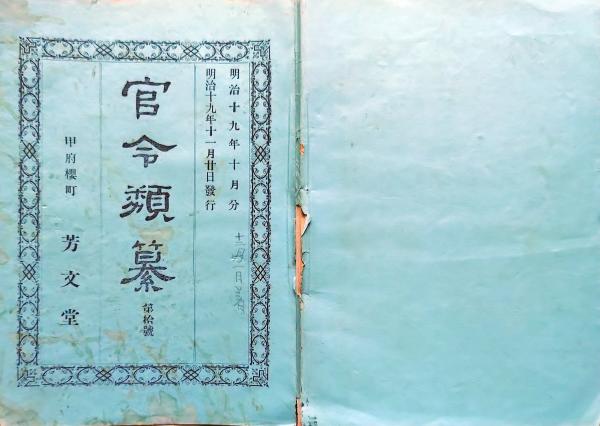 明治十九年十月分
明治十九年十一月廿日發行
官令類纂
第拾號
甲府櫻町 芳文堂